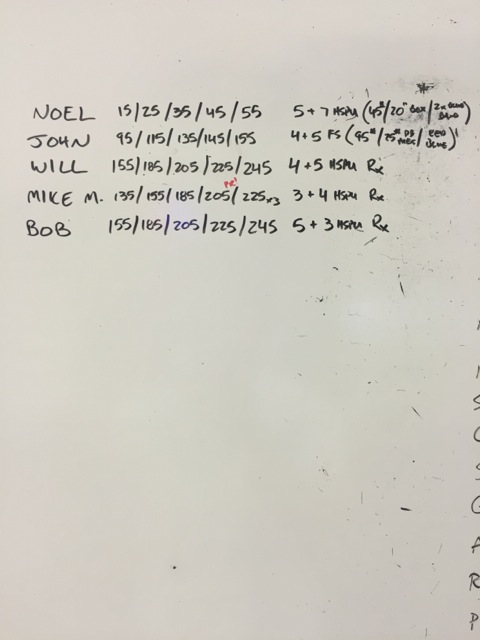 NOEL 15/25/35/45/55 5+7 HSPU (45#/20" BOX/2x BLUE BAND)
JOHN 95/115/135/145/155 4+5 FS (95#/25# DB PRES/RED BLUE)
WILL 155/185/205/225/245 4+5 HSPU Rx
PR!
MIKE M. 135/155/185/205/225x3 3+4 HSPU Rx
BOB 155/185/205/225/245 5+3 HSPU Rx
S
G
A
R
P